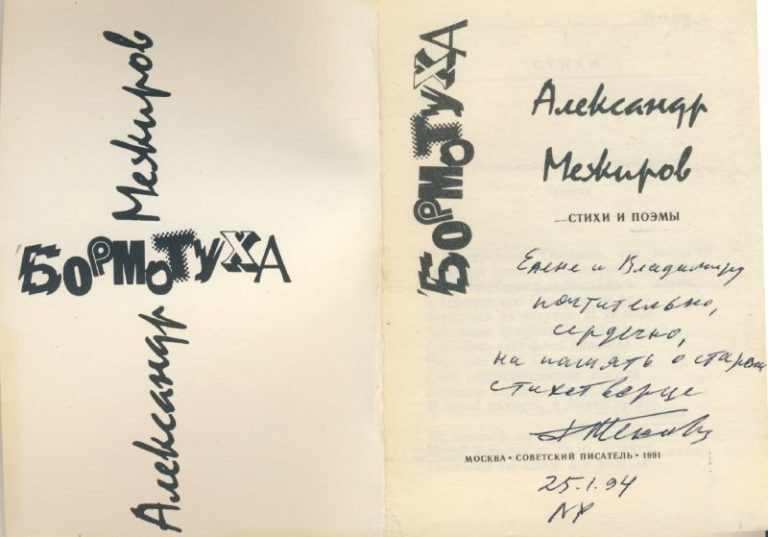 Александр Межиров
БОРМОТУХА
БОРМОТУХА
Александр
Межиров
СТИХИ И ПОЭМЫ
Елене и Владимиру
почтительно,
сердечно,
на память о старом
стихотворце
МОСКВА • СОВЕТСКИЙ ПИСАТЕЛЬ • 1991
25.1.94
NY